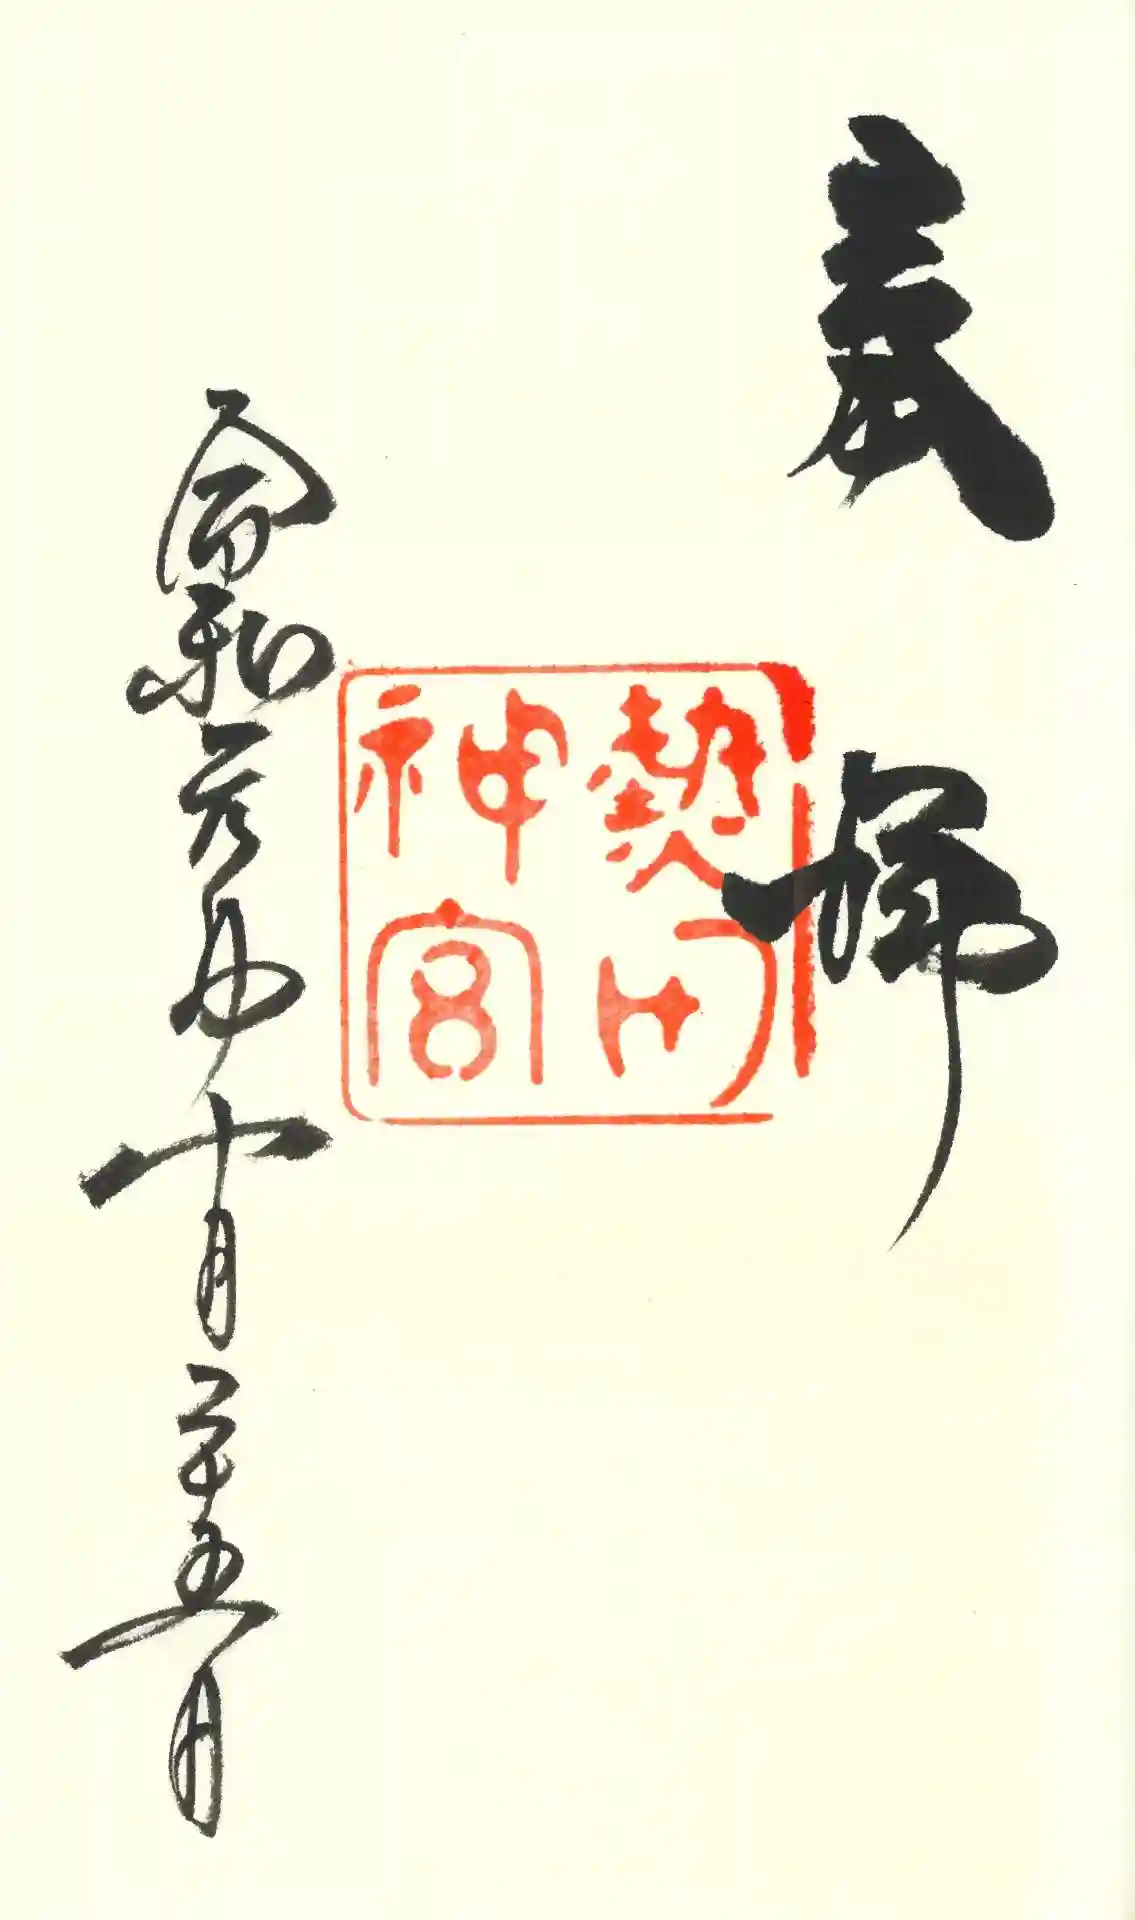 奉拝
熱田
神宮
令和元年十月二十五日